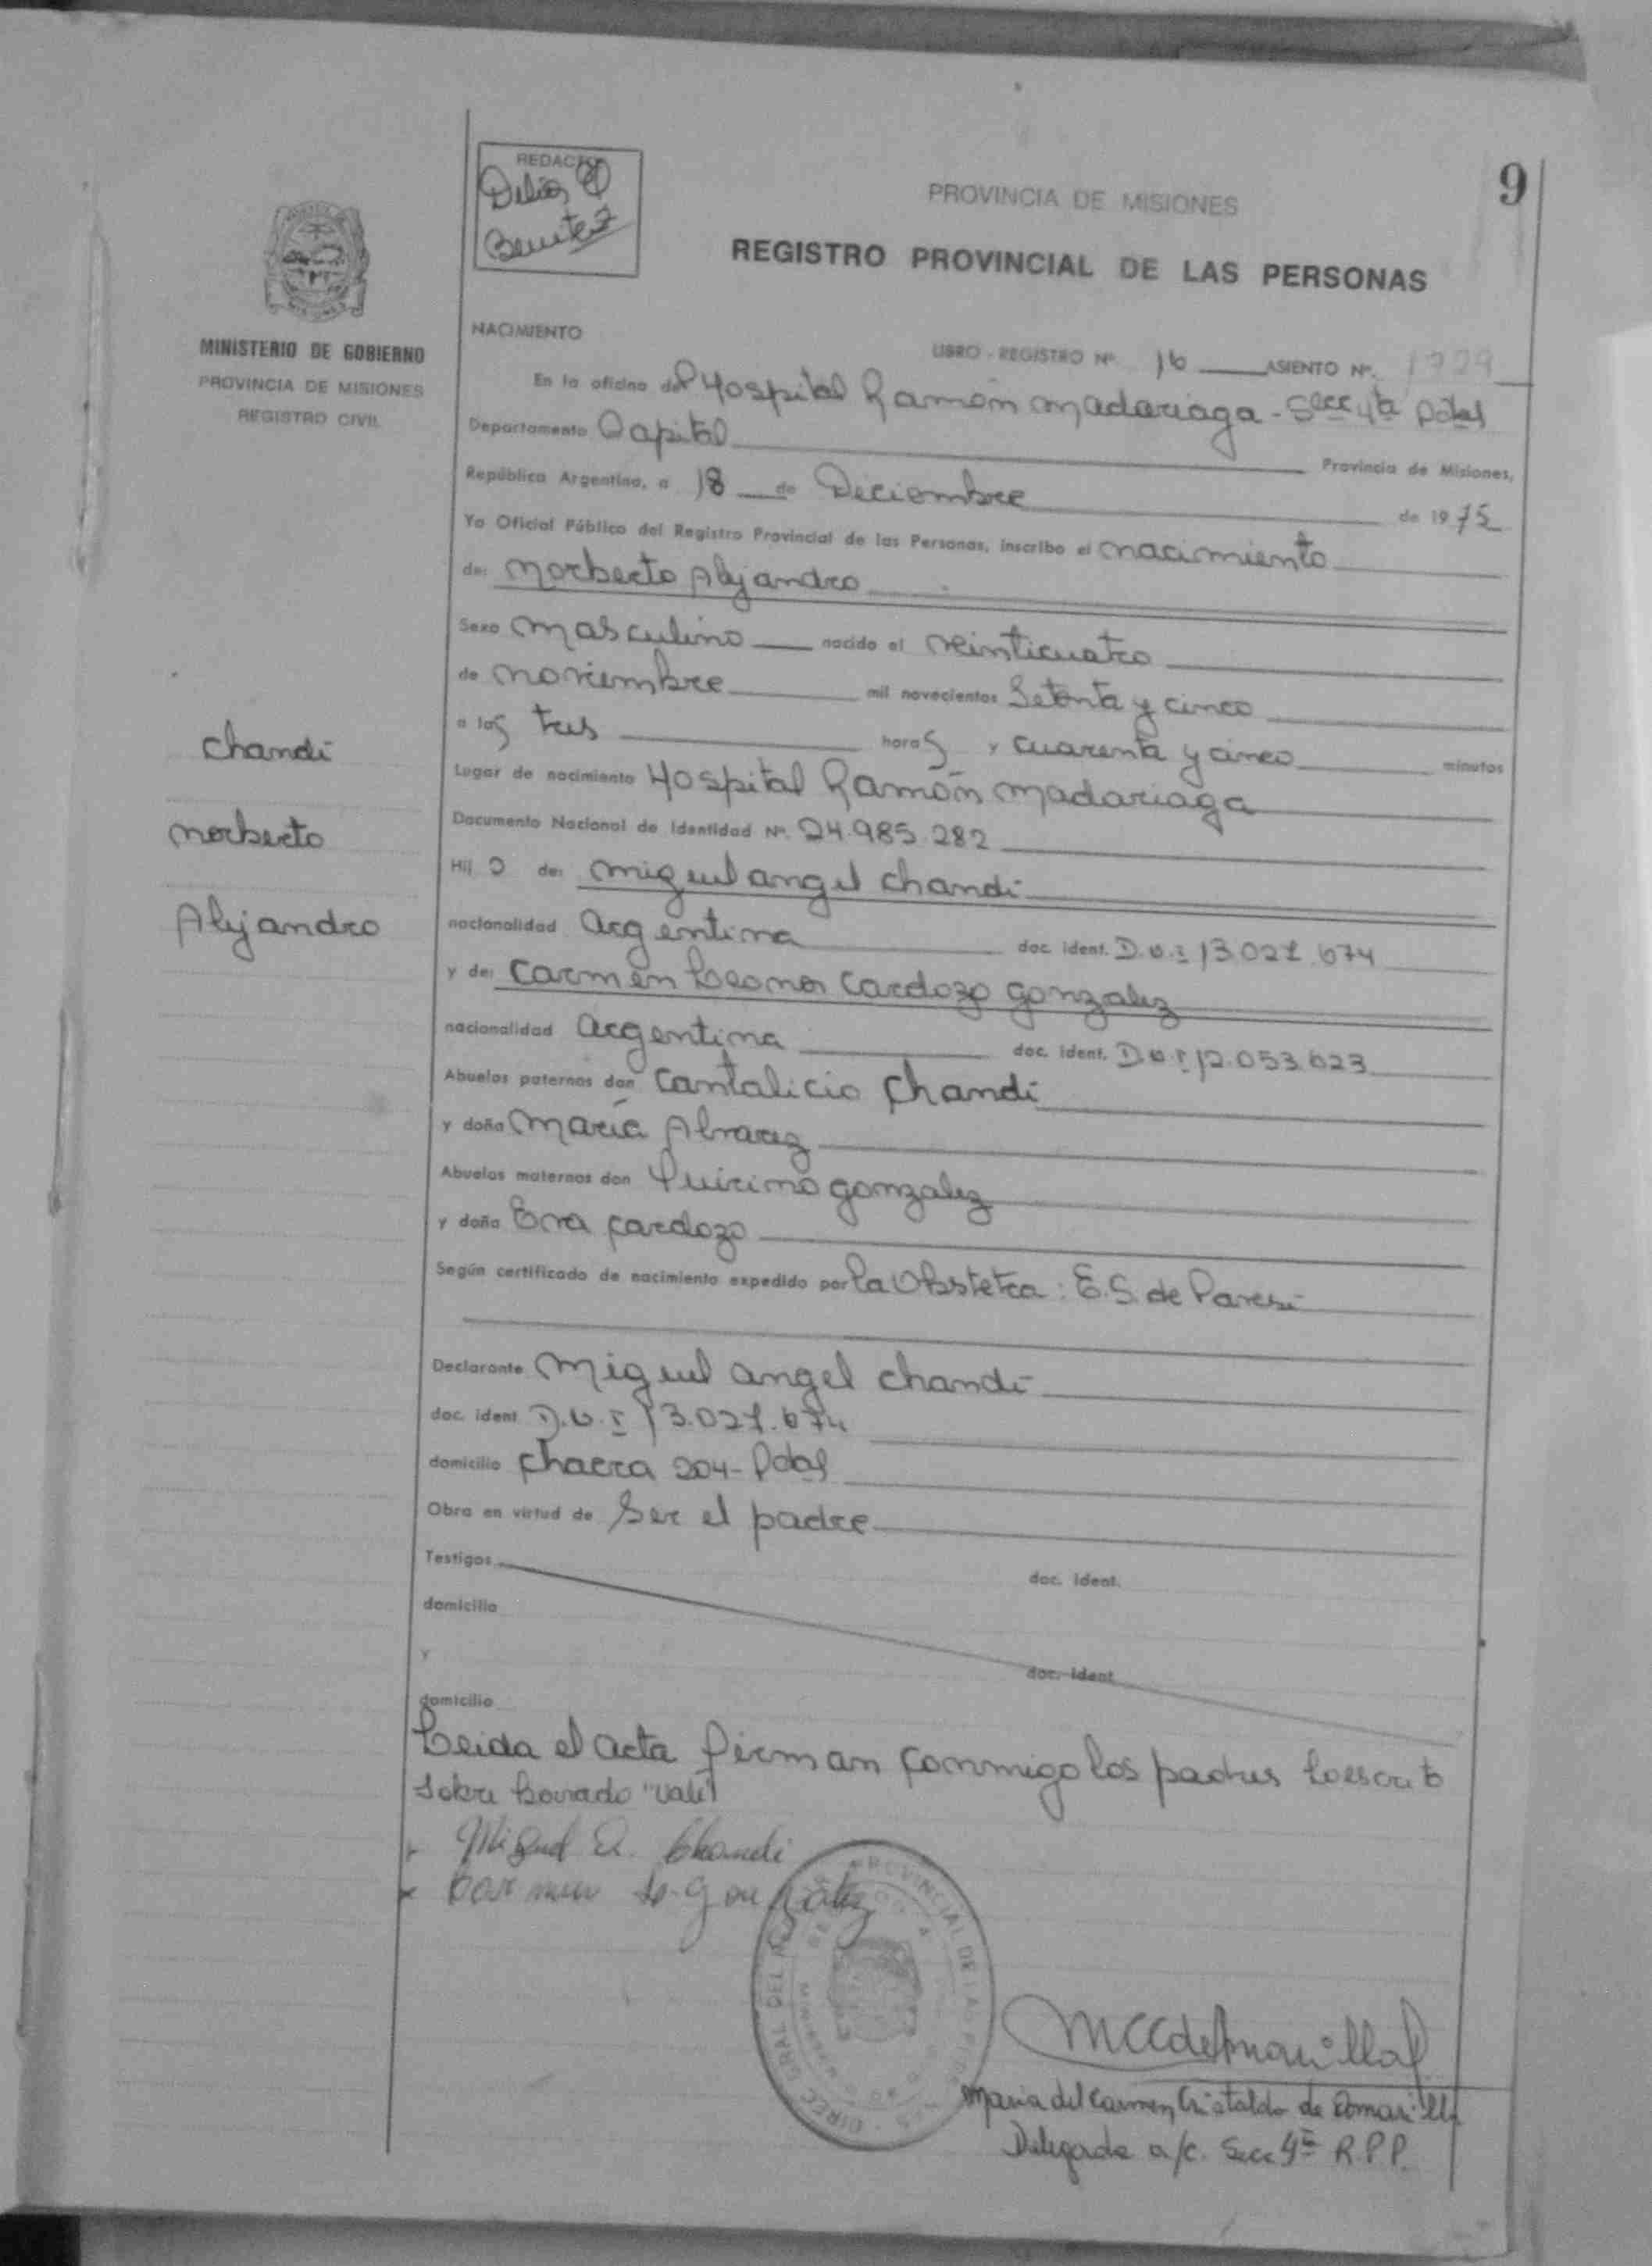 9
REDACTOR
Delia
Benitez
PROVINCIA DE MISIONES
REGISTRO PROVINCIAL DE LAS PERSONAS
MINISTERIO DE GOBIERNO
PROVINCIA DE MISIONES
REGISTRO CIVIL
NACIMIENTO
LIBRO - REGISTRO Nº 16 ASIENTO Nº. 1729
En la oficina del Hospital Ramón Madariaga - Secc 4ta Pdas
Departamento Capital Provincia de Misiones,
República Argentina, a 18 de Diciembre de 1975
Yo Oficial Público del Registro Provincial de las Personas, inscribo el nacimiento
de: Norberto Alejandro
Sexo masculino nacido el veinticuatro
de noviembre mil novecientos Setenta y cinco
a las tres horas y cuarenta y cinco minutos
Lugar de nacimiento Hospital Ramón Madariaga
Documento Nacional de Identidad Nº. 24.985.282
Hijo de: Miguel angel Chandi
nacionalidad argentina doc. ident. D.U.I 13.021.674
y de: Carmen Leonor Cardozo Gonzalez
nacionalidad argentina doc. ident. D.U.I 12.053.623
Abuelos paternos don Cantalicio Chandi
y doña María Alvarez
Abuelos maternos don Quirino Gonzalez
y doña Eva Cardozo
Según certificado de nacimiento expedido por la Obstetra: E.S. de Paresi
Declarante Miguel angel Chandi
doc. ident. D.U.I 13.021.674
domicilio Chacra 204 - Pdas
Obra en virtud de Ser el padre
Testigos doc. ident.
domicilio
y doc. ident
domicilio
Leida el acta firman conmigo los padres lo escrito
sobre borrado "vale"
Miguel A. Chandi
Carmen L. Gonzalez
Maria del Carmen Cristaldo de Amarilla
Delegada a/c. Secc 4ta R.P.P.
Chandi
Norberto
Alejandro